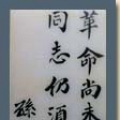 革命尚未
同志仍須
孫